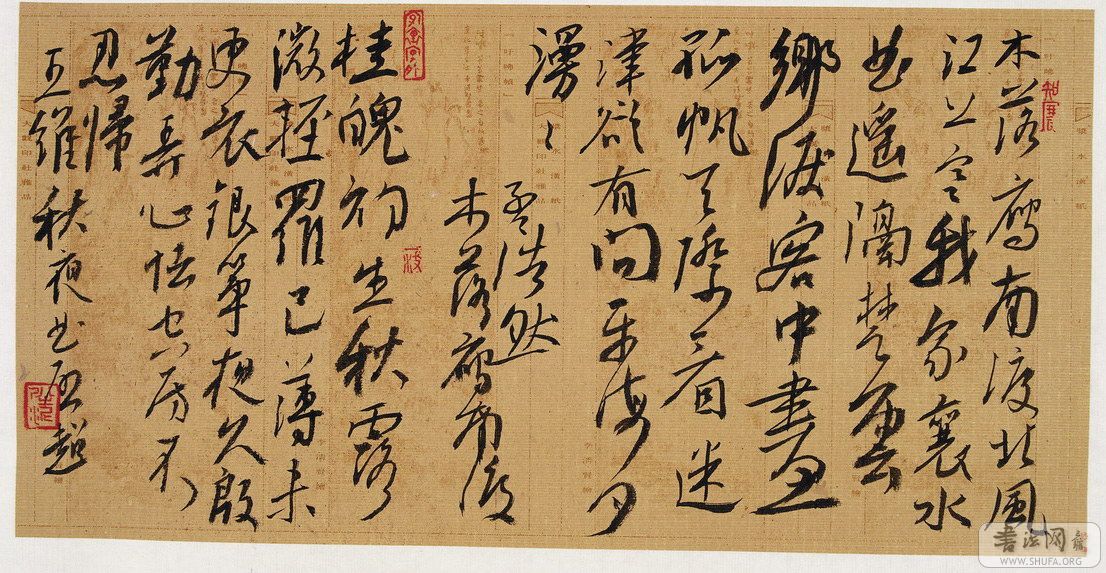 木落雁南渡北風
江上寒我家襄水
曲遙隔楚雲
鄉淚客中盡
孤帆天際看迷
津欲有問平海夕
漫々
孟浩然
木落雁南渡
桂魄初生秋露
微輕羅已薄未
更衣銀箏夜久殷
勤弄心怯空房不
忍歸
王維秋夜曲
書法网
WWW.SHUFA.ORG